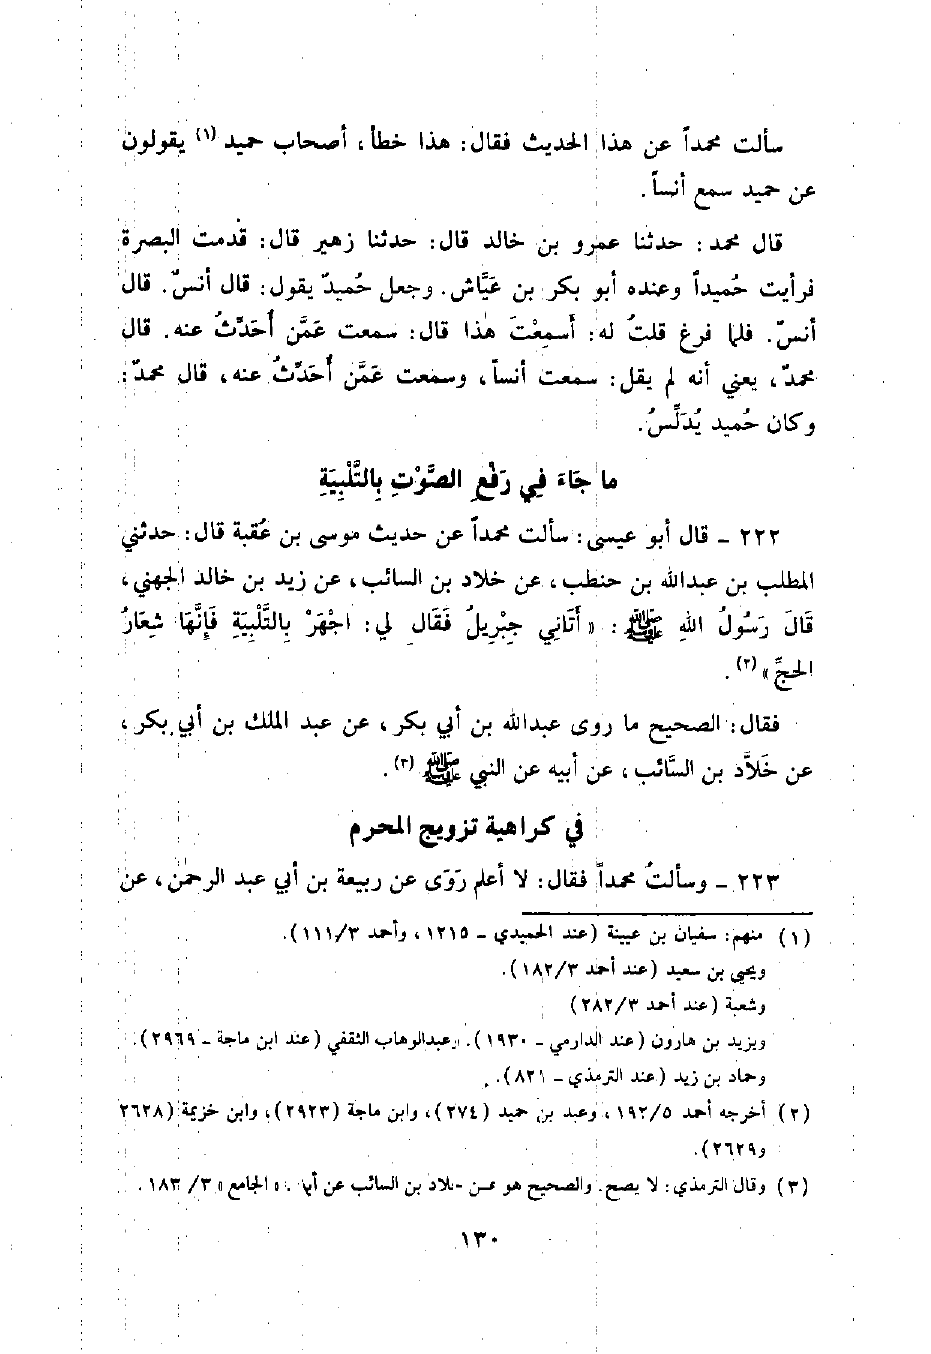 سألت محمداً عن هذا الحديث فقال: هذا خطأ، أصحاب حميد (١) يقولون
عن حميد سمع أنساً.
قال محمد: حدثنا عمرو بن خالد قال: حدثنا زهير قال: قدمت البصرة
فرأيت حُميداً وعنده أبو بكر بن عَيَّاش. وجعل حُميدٌ يقول: قال أنسٌ. قال
أنسٌ. فلما فرغ قلتُ له: أَسمِعْتَ هذا قال: سمعت عَمَّن أُحَدِّثُ عنه. قال
محمدٌ، يعني أنه لم يقل: سمعت أنساً، وسمعت عَمَّن أُحَدِّثُ عنه، قال محمدٌ:
وكان حُميد يُدَلِّسُ.
ما جَاءَ فِي رَفْعِ الصَّوْتِ بِالتَّلْبِيَةِ
٢٢٢ - قال أبو عيسى: سألت محمداً عن حديث موسى بن عُقبة قال: حدثني
المطلب بن عبدالله بن حنطب، عن خلاد بن السائب، عن زيد بن خالد الجهني،
قَالَ رَسُولُ اللهِ ﷺ: «أَتَانِي جِبْرِيلُ فَقَالِ لي: اجْهَرْ بِالتَّلْبِيَةِ فَإِنَّهَا شِعَارُ
الحجِّ» (٢).
فقال: الصحيح ما روى عبدالله بن أبي بكر، عن عبد الملك بن أبي بكر،
عن خَلاَّد بن السَّائب، عن أبيه عن النبي ﷺ (٣).
في كراهية تزويج المحرم
٢٢٣ - وسألتُ محمداً فقال: لا أعلم رَوَى عن ربيعة بن أبي عبد الرحمن، عن
(١) منهم: سفيان بن عيينة (عند الحميدي - ١٢١٥، وأحمد ١١١/٣).
ويحيى بن سعيد (عند أحمد ١٨٢/٣).
وشعبة (عند أحمد ٢٨٢/٣)
ويزيد بن هارون (عند الدارمي - ١٩٣٠). وعبدالوهاب الثقفي (عند ابن ماجة - ٢٩٦٩).
وحماد بن زيد (عند الترمذي - ٨٢١).
(٢) أخرجه أحمد ١٩٢/٥، وعبد بن حميد (٢٧٤)، وابن ماجة (٢٩٢٣)، وابن خزيمة (٢٦٢٨
و٢٦٢٩).
(٣) وقال الترمذي: لا يصح. والصحيح هو عن خلاد بن السائب عن أبيه. «الجامع» ٣/ ١٨٣.
١٣٠